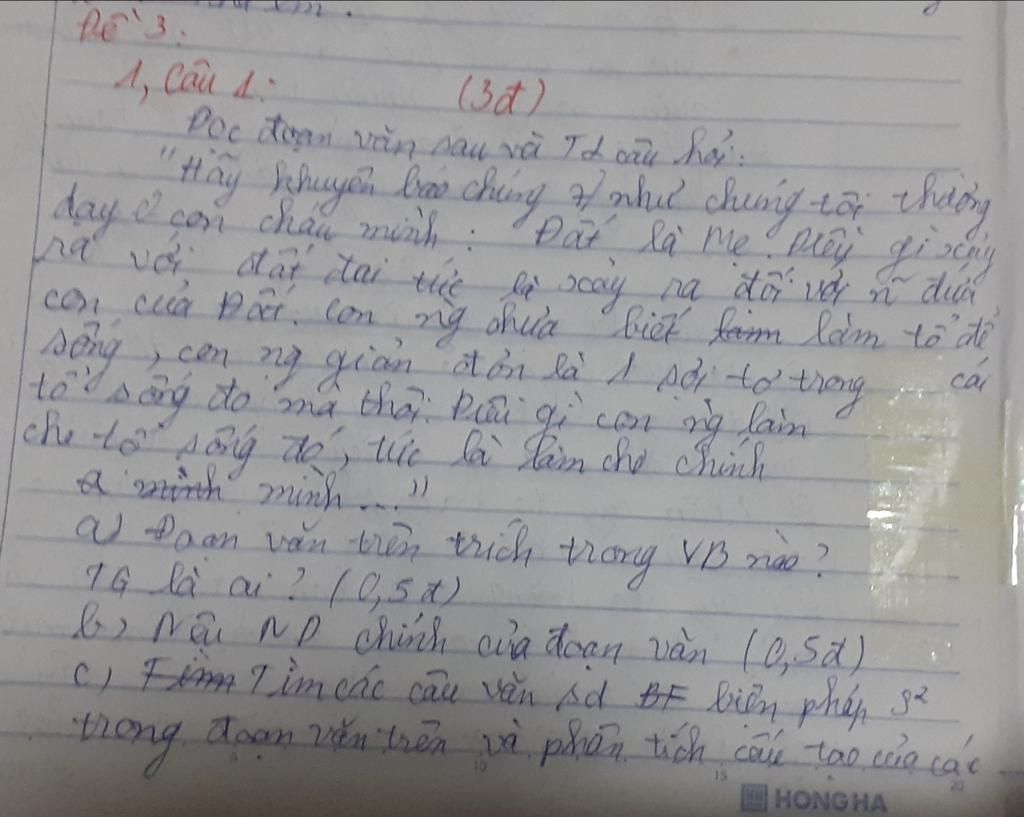 Đề 3:
1, Câu 1: (3đ)
Đọc đoạn văn sau và TL câu hỏi:
"Hãy khuyên bảo chúng như chúng tôi thường
dạy con cháu mình: Đất là Mẹ. Điều gì xảy
ra với đất đai tức là xảy ra đối với n~ đứa
con của Đất. Con ng chưa biết làm tổ để
sống, con ng giản đơn là 1 sợi tơ trong cái
tổ sống đó mà thôi. Điều gì con ng làm
cho tổ sống đó, tức là làm cho chính
mình..."
a) Đoạn văn trên trích trong VB nào?
TG là ai? (0,5đ)
b) Nêu ND chính của đoạn văn (0,5đ)
c) Tìm các câu văn sd biện pháp s²
trong đoạn văn trên và phân tích cấu tạo của các
10 15 20
HONG HA